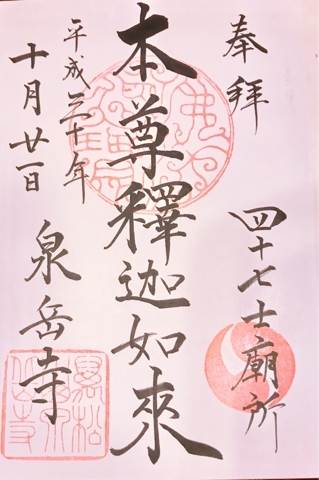 奉拝
四十七士廟所
本尊釋迦如來
平成三十年
十月廿一日
泉岳寺